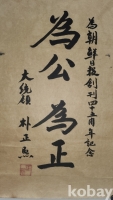 為朝鮮日報創刊四十五周年記念
為公 為正
大統領 朴正熙
kobay